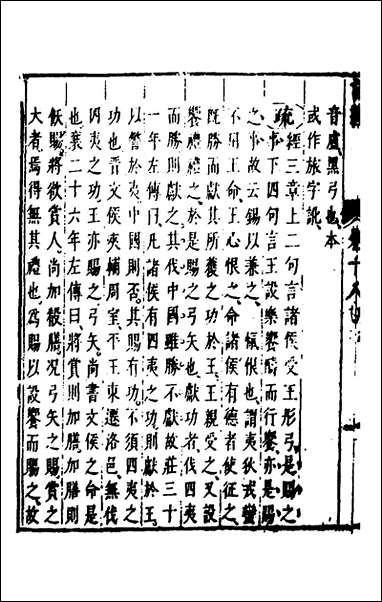 音盧黑弓也本
或作旅字訛
疏經三章上二句言諸侯受王彤弓是賜之
事下四句言王設樂饗醻而行饗亦是賜
之事故云錫以兼之 愾恨也謂夷狄戎蠻
不用王命王心恨之命諸侯有德者使征之
既勝而獻其所獲之功於王王親受之又設
饗禮禮之於是賜之弓矢也獻功者伐四夷
而勝則獻之其伐中國雖勝不獻故莊三十
一年左傳曰凡諸侯有四夷之功則獻於王
以警於夷中國則否其賜有功不須四夷之
功也晉文侯夾輔周室平王東遷洛邑無伐
四夷之功王亦賜之弓矢尚書文侯之命是
也襄二十六年左傳曰將賞則加膳加膳則
飫賜將欲賞人尚加殺膳況弓矢之賜賞之
大者焉得無其禮也為賜以設饗而賜之故